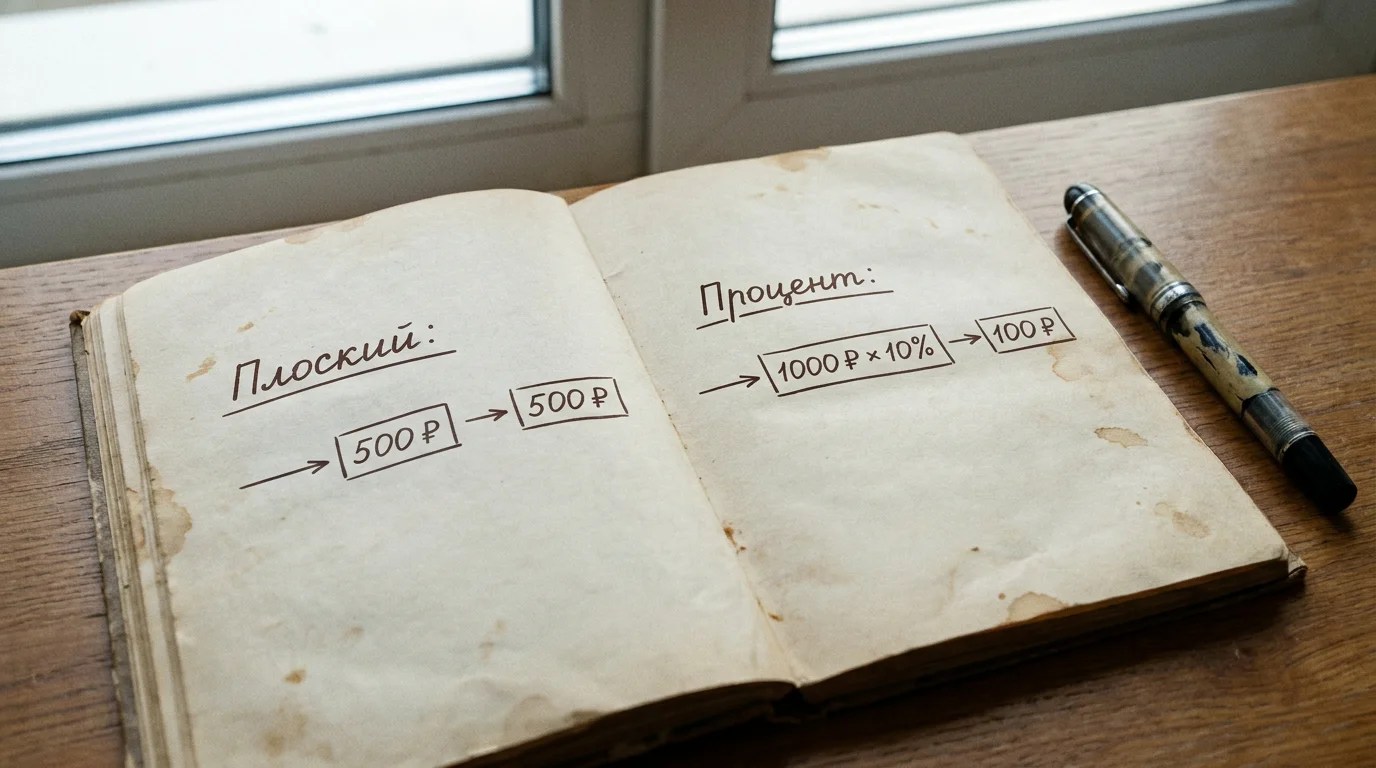 Плоский:
→ 500 ₽ → 500 ₽
Процент:
→ 1000 ₽ × 10% → 100 ₽